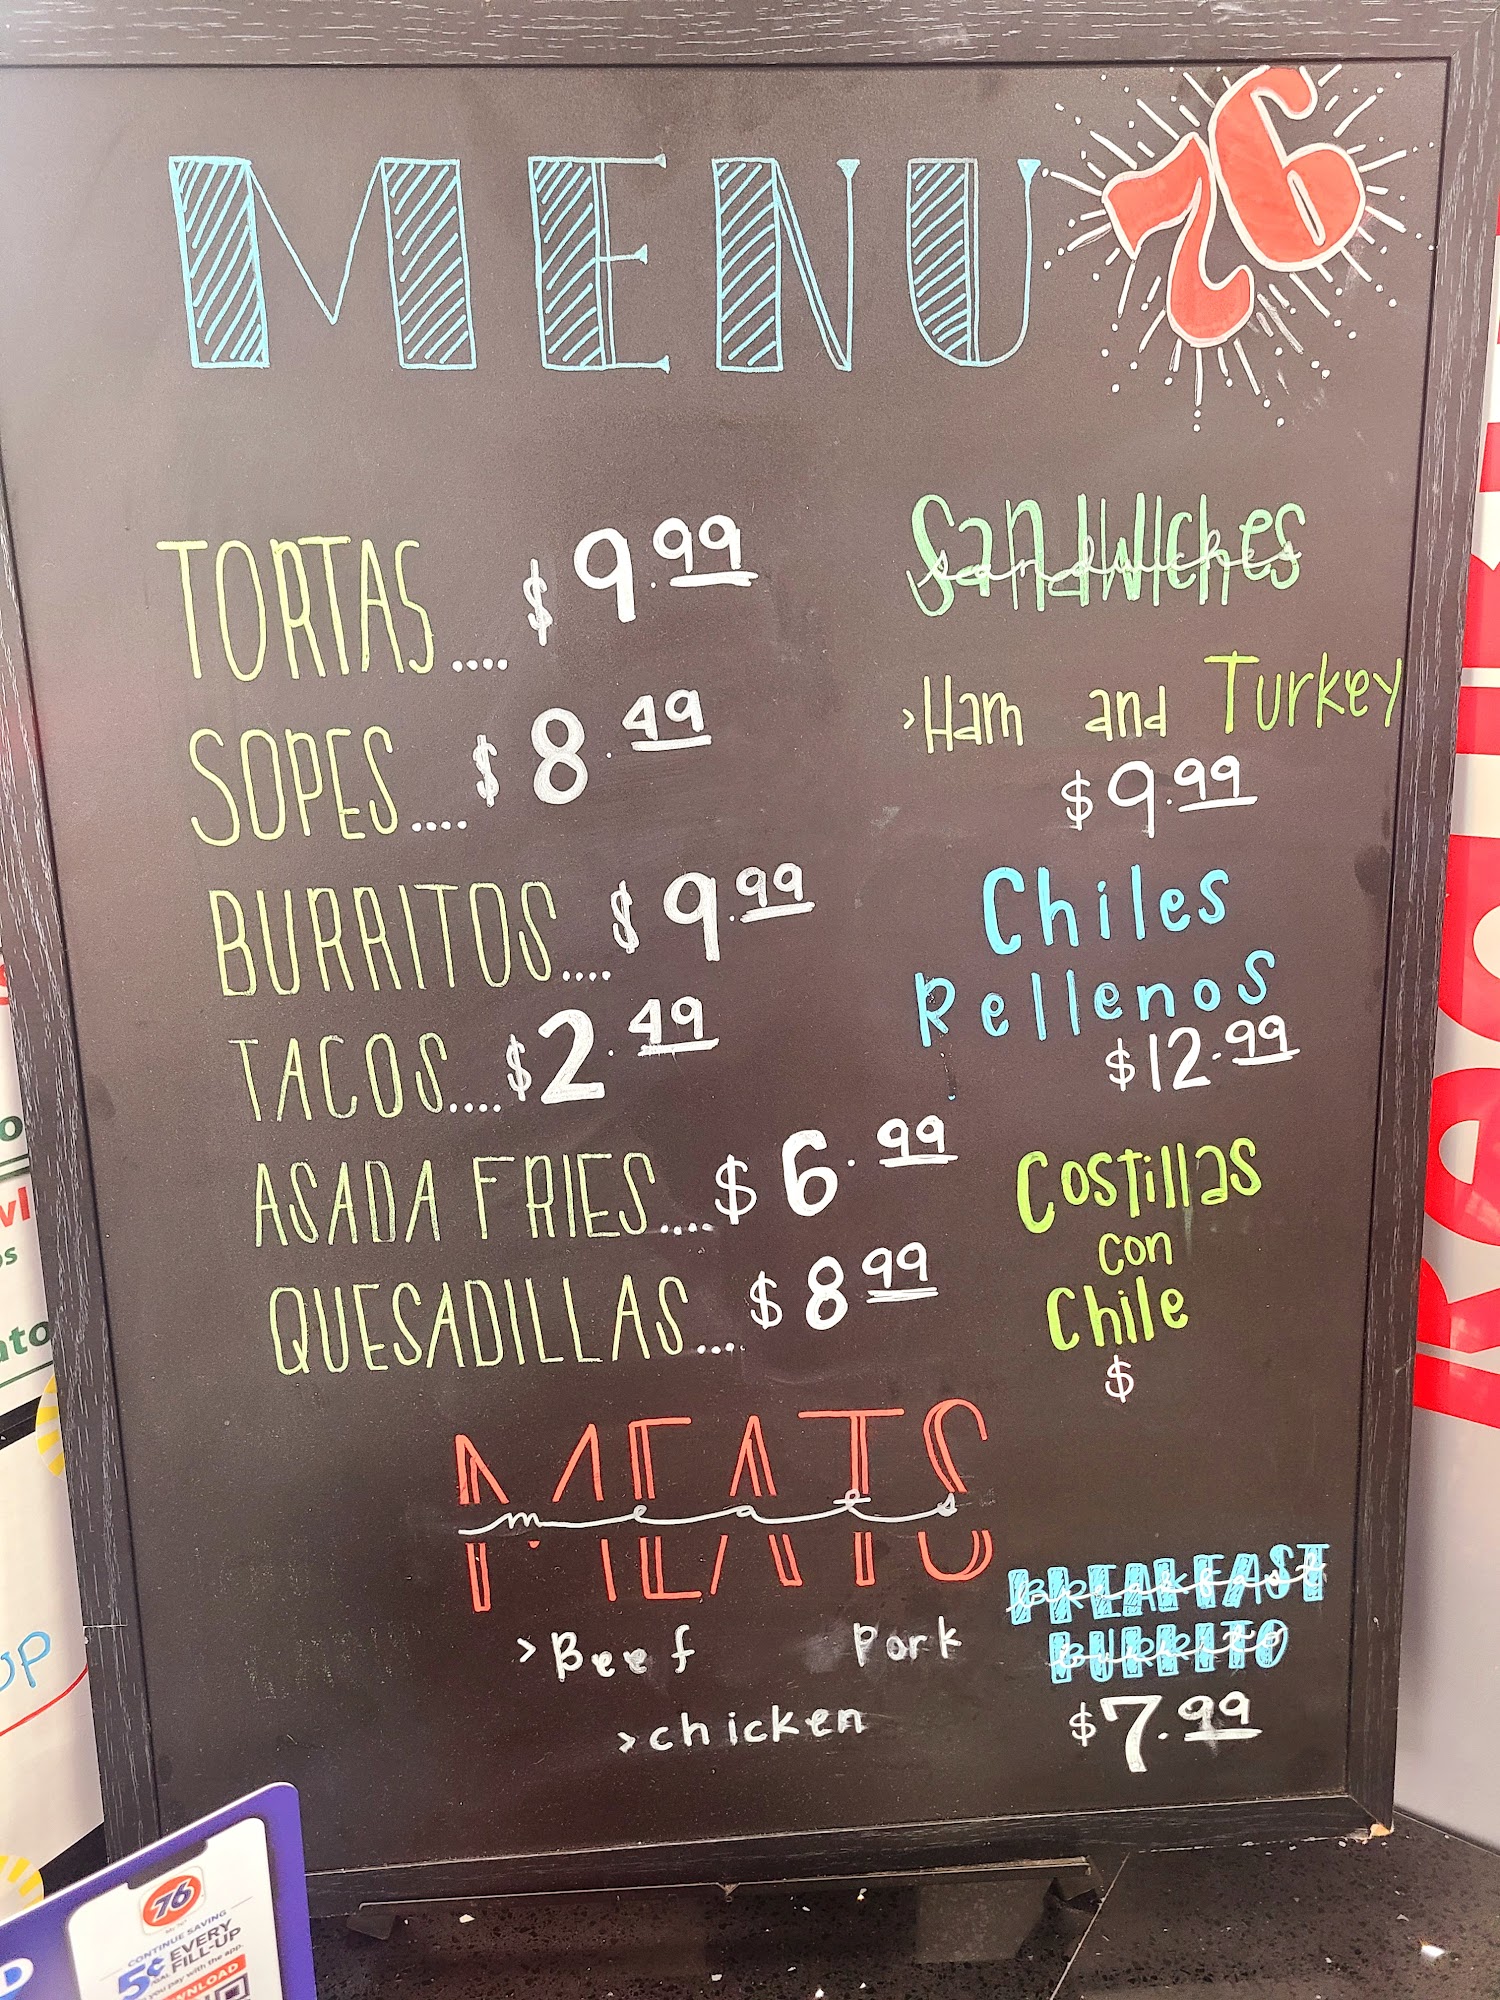 MENU
76
TORTAS....$9.99
SOPES....$8.49
BURRITOS....$9.99
TACOS....$2.49
ASADA FRIES....$6.99
QUESADILLAS....$8.99
Sandwiches
sandwiches
>Ham and Turkey
$9.99
Chiles
Rellenos
$12.99
Costillas
con
Chile
$
MEATS
meats
>Beef Pork
>chicken
BREAKFAST
breakfast
BURRITO
burrito
$7.99
76
CONTINUE SAVING
5¢ EVERY
FILL-UP
pay with the app.